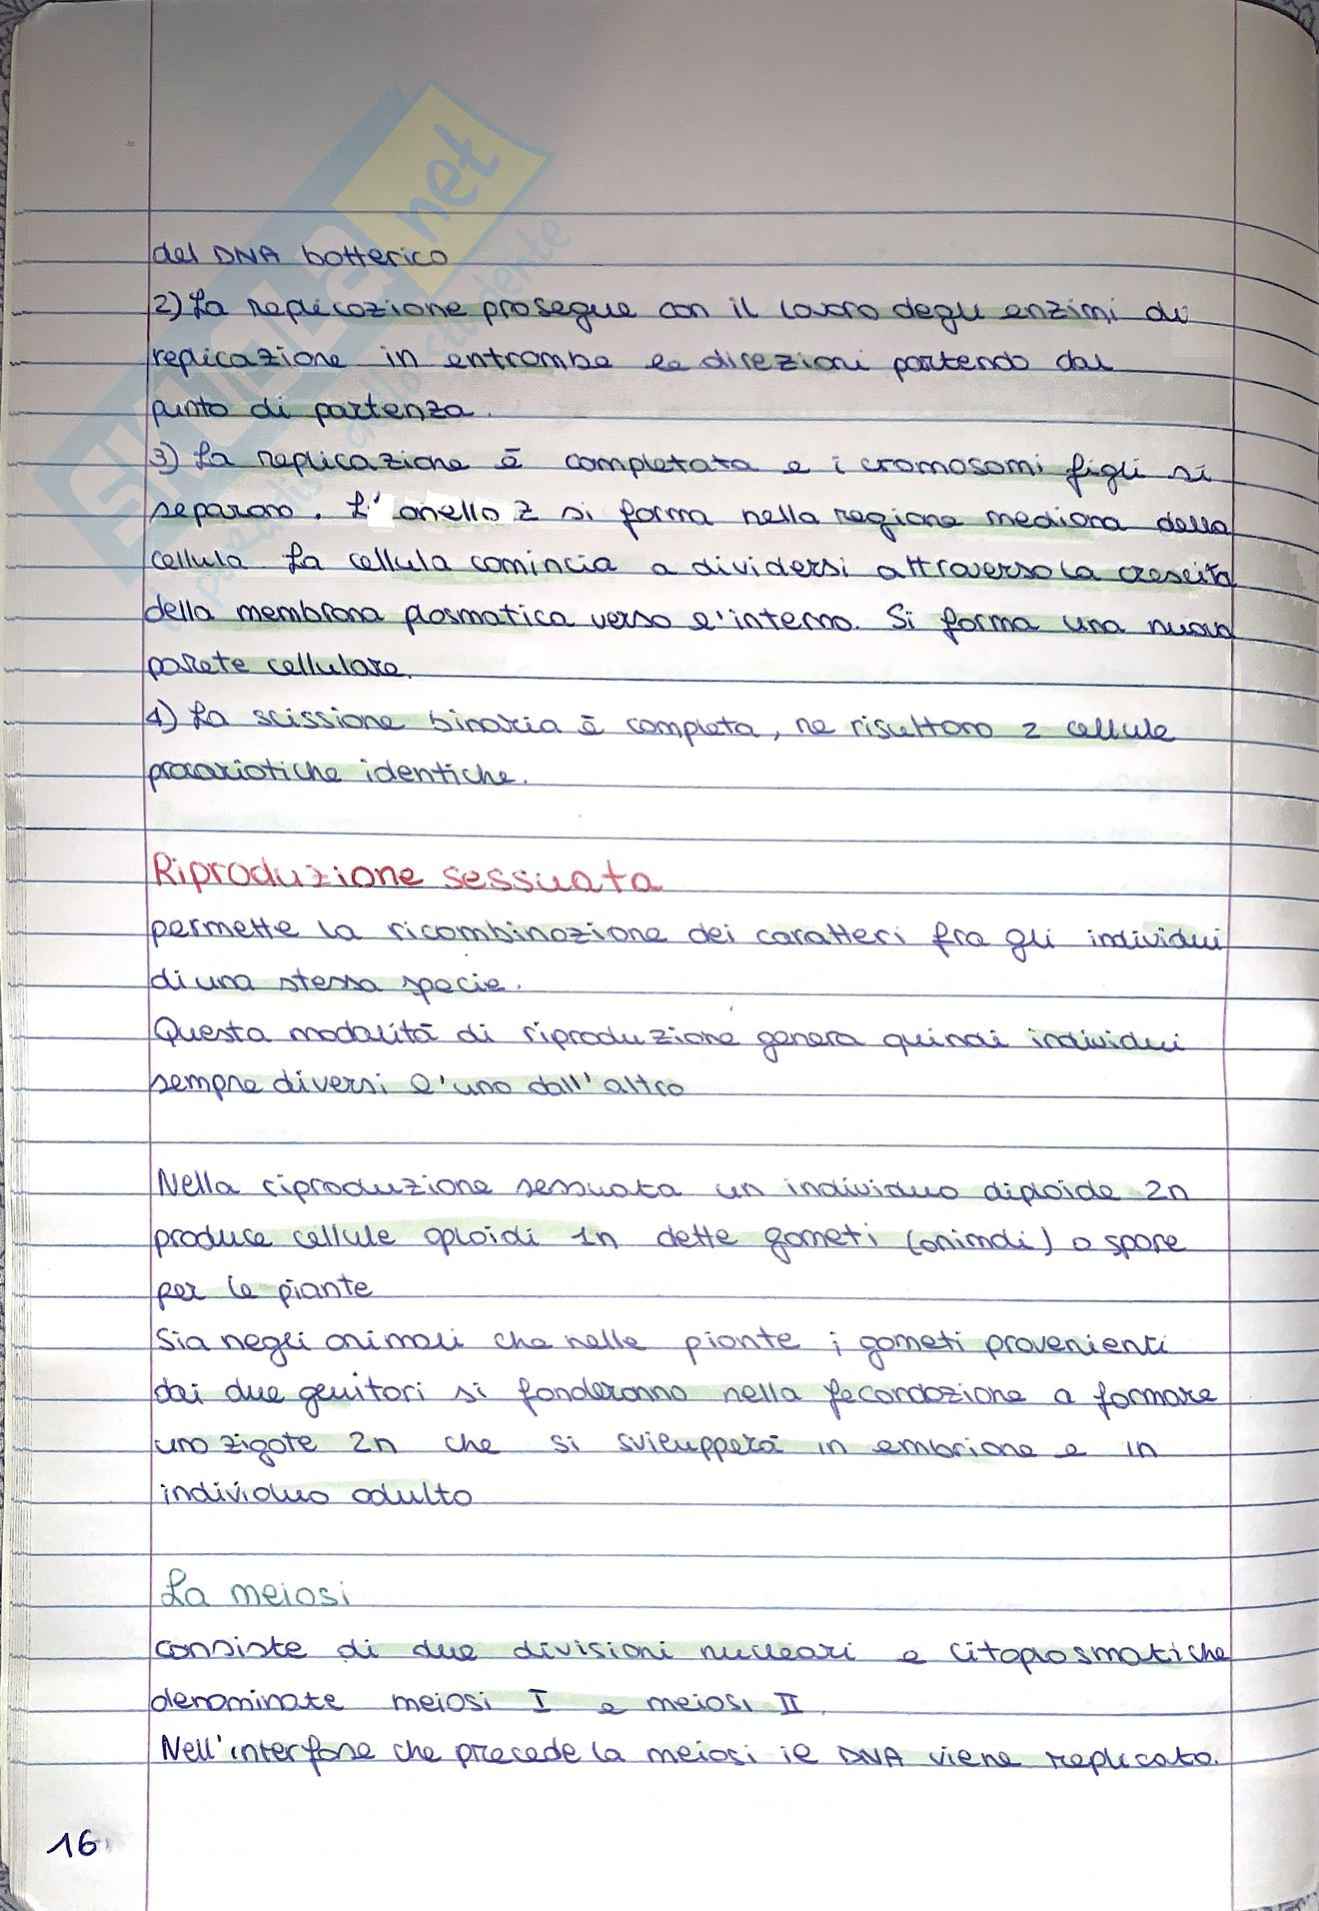 del DNA batterico
2) La replicazione prosegue con il lavoro degli enzimi di
replicazione in entrambe le direzioni partendo dal
punto di partenza.
3) La replicazione è completata e i cromosomi figli si
separano. L'anello Z si forma nella regione mediana della
cellula. La cellula comincia a dividersi attraverso la crescita
della membrana plasmatica verso l'interno. Si forma una nuova
parete cellulare.
4) La scissione binaria è completa, ne risultano 2 cellule
procariotiche identiche.
Riproduzione sessuata
permette la ricombinazione dei caratteri fra gli individui
di una stessa specie.
Questa modalità di riproduzione genera quindi individui
sempre diversi l'uno dall'altro
Nella riproduzione sessuata un individuo diploide 2n
produce cellule aploidi 1n dette gameti (animali) o spore
per le piante
Sia negli animali che nelle piante i gameti provenienti
dai due genitori si fonderanno nella fecondazione a formare
uno zigote 2n che si svilupperà in embrione e in
individuo adulto
La meiosi
consiste di due divisioni nucleari e citoplasmatiche
denominate meiosi I e meiosi II.
Nell'interfase che precede la meiosi il DNA viene replicato.
16
skuola.net